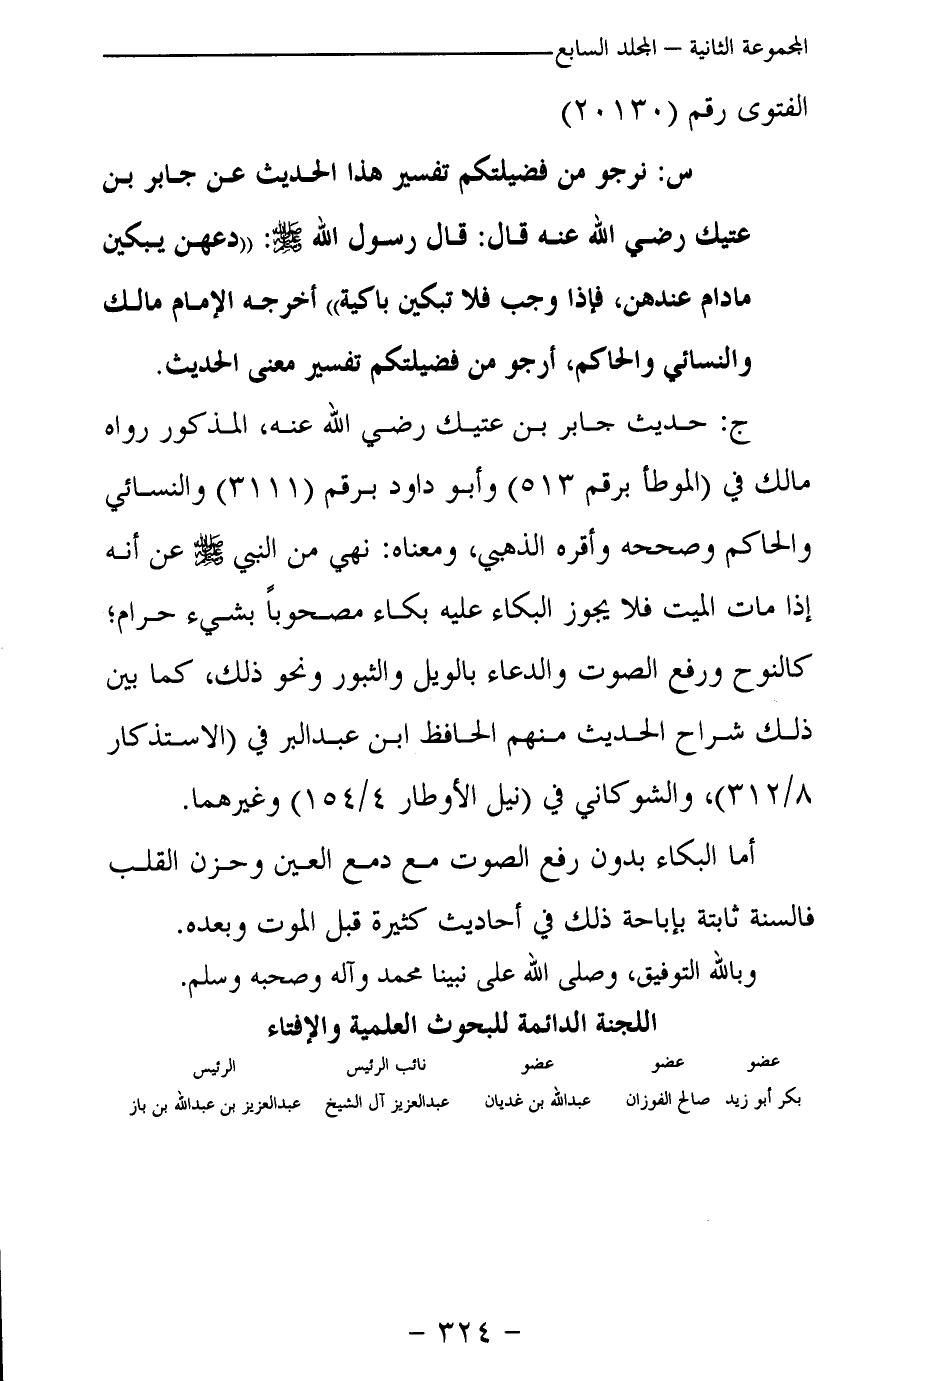 المجموعة الثانية – المجلد السابع
الفتوى رقم (٢٠١٣٠)
س: نرجو من فضيلتكم تفسير هذا الحديث عن جابر بن
عتيك رضي الله عنه قال: قال رسول الله ﷺ: ((دعهن يبكين
مادام عندهن، فإذا وجب فلا تبكين باكية)) أخرجه الإمام مالك
والنسائي والحاكم، أرجو من فضيلتكم تفسير معنى الحديث.
ج: حديث جابر بن عتيك رضي الله عنه، المذكور رواه
مالك في (الموطأ برقم ٥١٣) وأبو داود برقم (٣١١١) والنسائي
والحاكم وصححه وأقره الذهبي، ومعناه: نهي من النبي ﷺ عن أنه
إذا مات الميت فلا يجوز البكاء عليه بكاء مصحوباً بشيء حرام؛
كالنوح ورفع الصوت والدعاء بالويل والثبور ونحو ذلك، كما بين
ذلك شراح الحديث منهم الحافظ ابن عبدالبر في (الاستذكار
٣١٢/٨)، والشوكاني في (نيل الأوطار ١٥٤/٤) وغيرهما.
أما البكاء بدون رفع الصوت مع دمع العين وحزن القلب
فالسنة ثابتة بإباحة ذلك في أحاديث كثيرة قبل الموت وبعده.
وبالله التوفيق، وصلى الله على نبينا محمد وآله وصحبه وسلم.
اللجنة الدائمة للبحوث العلمية والإفتاء
عضو عضو عضو نائب الرئيس الرئيس
بكر أبو زيد صالح الفوزان عبدالله بن غديان عبدالعزيز آل الشيخ عبدالعزيز بن عبدالله بن باز
– ٣٢٤ –